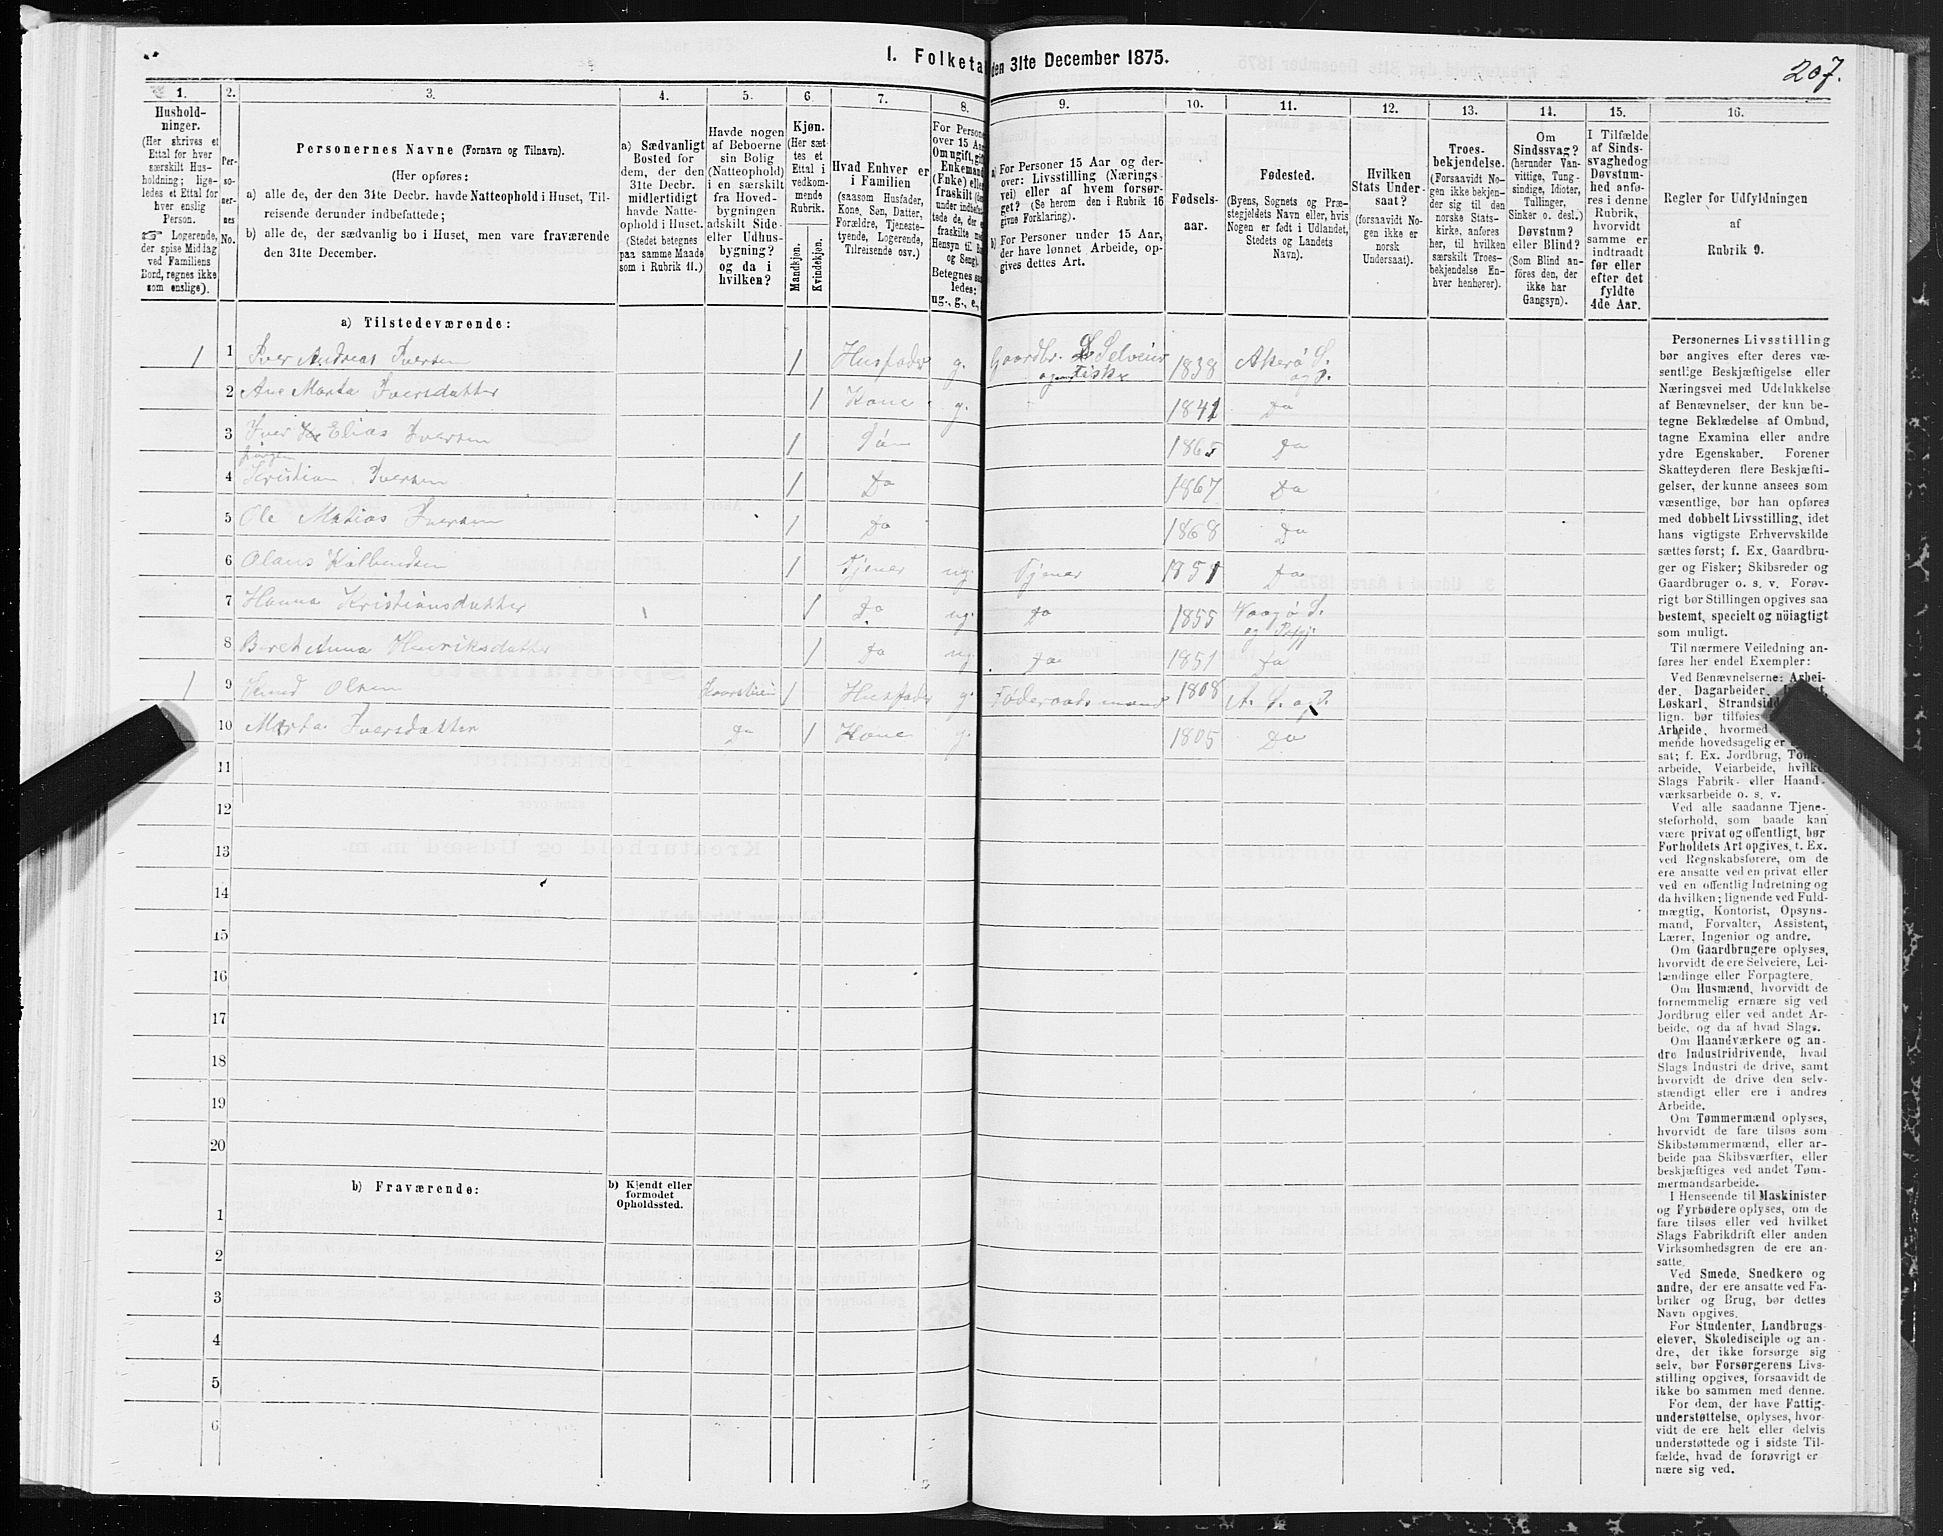 I. Folketa den 31te December 1875.
207.
1. 2. 3. 4. 5. 6. 7. 8. 9. 10. 11. 12. 13. 14. 15. 16.
Hushold-
ninger.
(Her skrives et
Ettal for hver
særskilt Hus-
holdning; lige-
ledes et Ettal for
hver enslig
Person.
☞ Logerende,
der spise Middag
ved Familiens
Bord, regnes ikke
som enslige).
Per-
so-
ner-
nes
No.
Personernes Navne (Fornavn og Tilnavn).
(Her opføres:
a) alle de, der den 31te Decbr. havde Natteophold i Huset, Til-
reisende derunder indbefattede;
b) alle de, der sædvanlig bo i Huset, men vare fraværende
den 31te December.
a) Sædvanligt
Bosted for
dem, der den
31te Decbr.
midlertidigt
havde Natte-
ophold i Huset.
(Stedet betegnes
paa samme Maade
som i Rubrik 11.)
Havde nogen
af Beboerne
sin Bolig
(Natteophold)
i en særskilt
fra Hoved-
bygningen
adskilt Side-
eller Udhus-
bygning?
og da i
hvilken?
Kjøn.
(Her sæt-
tes et
Ettal i
vedkom-
mende
Rubrik.
Mandkjøn.
Kvindekjøn.
Hvad Enhver er
i Familien
(saasom Husfader,
Kone, Søn, Datter,
Forældre, Tjeneste-
tyende, Logerende,
Tilreisende osv.)
For Persone
over 15 Aar
Om ugift, gift,
Enkemand
(Enke) elle
fraskilt
Hensyn til
og Seng).
Betegnes
ledes:
ug., g., e.,
a) For Personer 15 Aar og der-
over: Livsstilling (Nærings-
vei) eller af hvem forsør-
get? (Se herom den i Rubrik 16
givne Forklaring).
b) For Personer under 15 Aar,
der have lønnet Arbeide, op-
gives dettes Art.
Fødsels-
aar.
Fødested.
(Byens, Sognets og Præ-
stegjeldets Navn eller, hvis
Nogen er født i Udlandet,
Stedets og Landets
Navn).
Hvilken
Stats Under-
saat?
(forsaavidt No-
gen ikke er
norsk
Undersaat).
Troes-
bekjendelse.
(Forsaavidt No-
gen ikke bekjen-
der sig til den
norske Stats-
kirke, anføres
her, til hvilken
særskilt Troes-
bekjendelse En-
hver henhører).
Om
Sindssvag?
(herunder Van-
vittige, Tung-
sindige, Idioter,
Tullinger,
Sinker o. desl.)
Døvstum?
eller Blind?
(Som Blind an-
føres den, der
ikke har
Gangsyn).
I Tilfælde
af Sinds-
svaghed og
Døvstum-
hed anfø-
res i denne
Rubrik,
hvorvidt
samme er
indtraadt
før eller
efter det
fyldte
4de Aar.
Regler for Udfyldningen
af
Rubrik 9.
a) Tilstedeværende:
1 1 Iver Andreas Iversen 1 Husfader g. Gaardbr. Selveier 1838 Akerø S.
og Fisker og P.
2 Ane Marta Iversdatter 1 Kone g. 1841 Do
3 Iver Elias Iversen 1 Søn 1865 Do
Jørgen
4 Kristian Iversen 1 Do 1867 Do
5 Ole Matias Iversen 1 Do 1868 Do
6 Olaus Kolbendsen 1 Tjener ug. Tjener 1851 Do
7 Hanna Kristiansdatter 1 Do ug. Do 1855 Vaagø S.
og Præstgj.
8 Beret Anna Henriksdatter 1 Do ug. Do 1851 Do
1 9 Knud Olsen Kaarstuen 1 Husfader g. Føderaadsmand 1808 A. S. og P.
10 Marta Iversdatter Do 1 Kone g. 1805 Do
11
12
13
14
15
16
17
18
19
20
b) Fraværende:
b) Kjendt eller
formodet
Opholdssted.
1
2
3
4
5
6
Personernes Livsstilling
bør angives efter deres væ-
sentlige Beskjæftigelse eller
Næringsvei med Udelukkelse
af Benævnelser, der kun be-
tegne Beklædelse af Ombud,
tagne Examina eller andre
ydre Egenskaber. Forener
Skatteyderen flere Beskjæfti-
gelser, der kunne ansees som
væsentlige, bør han opføres
med dobbelt Livsstilling, idet
hans vigtigste Erhvervskilde
sættes først; f. Ex. Gaardbru-
ger og Fisker; Skibsreder og
Gaardbruger o. s. v. Forøv-
rigt bør Stillingen opgives saa
bestemt, specielt og nöiagtigt
som muligt.
Til nærmere Veiledning an-
føres her endel Exempler:
Ved Benævnelserne: Arbei-
der, Dagarbeider,
Løskarl, Strandsidd
lign. bør tilføies
Arbeide, hvormed
mende hovedsagelig er
sat; f. Ex. Jordbrug, Tøm
arbeide, Veiarbeide, hvilke
Slags Fabrik- eller Haand-
værksarbeide o. s. v.
Ved alle saadanne Tjene-
steforhold, som baade kan
være privat og offentligt, bør
Forholdets Art opgives, t. Ex.
ved Regnskabsførere, om de
ere ansatte ved en privat eller
ved en offentlig Indretning og
da hvilken; lignende ved Fuld-
mægtig, Kontorist, Opsyns-
mand, Forvalter, Assistent,
Lærer, Ingeniør og andre.
Om Gaardbrugere oplyses,
hvorvidt de ere Selveiere, Lei-
lændinge eller Forpagtere.
Om Husmænd, hvorvidt de
fornemmelig ernære sig ved
Jordbrug eller ved andet Ar-
beide, og da af hvad Slags.
Om Haandværkere og an-
dre Industridrivende, hvad
Slags Industri de drive, samt
hvorvidt de drive den selv-
stændigt eller ere i andres
Arbeide.
Om Tømmermænd oplyses,
hvorvidt de fare tilsøs som
Skibstømmermænd, eller ar-
beide paa Skibsværfter, eller
beskjæftiges ved andet Tøm-
mermandsarbeide.
I Henseende til Maskinister
og Fyrbødere oplyses, om de
fare tilsøs eller ved hvilket
Slags Fabrikdrift eller anden
Virksomhedsgren de ere an-
satte.
Ved Smede, Snedkere og
andre, der ere ansatte ved Fa-
briker og Brug, bør dettes
Navn opgives.
For Studenter, Landbrugs-
elever, Skoledisciple og an-
dre, der ikke forsørge sig
selv, bør Forsørgerens Livs-
stilling opgives, forsaavidt de
ikke bo sammen med denne.
For dem, der have Fattig-
understøttelse, oplyses, hvor-
vidt de ere helt eller delvis
understøttede og i sidste Til-
fælde, hvad de forøvrigt er
nære sig ved.